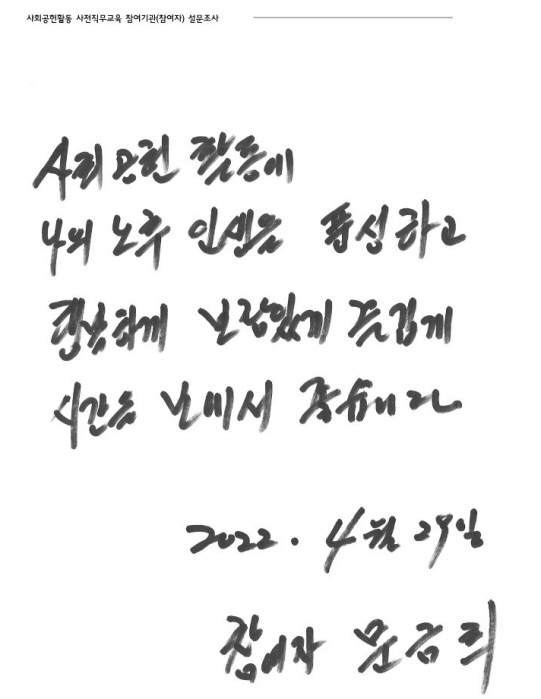 사회공헌활동 사전직무교육 참여기관(참여자) 설문조사
사회공헌 활동이
나의 노후 인생을 풍성하고
행복하게 보람있게 즐겁게
시간을 보내서 좋습니다.
2022. 4월 29일
참여자 문금희